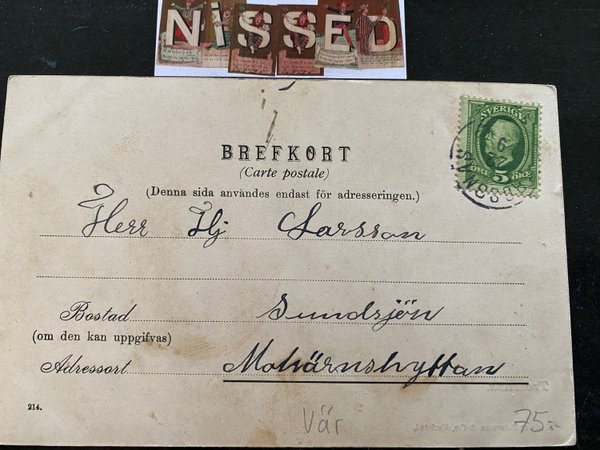 NISSED
SVERIGE
5
ÖRE ÖRE
BREFKORT
(Carte postale)
(Denna sida användes endast för adresseringen.)
Herr Hj Larsson
Bostad Sundsjön
(om den kan uppgifvas)
Adressort Motjärnshyttan
214.
Vär 75:-